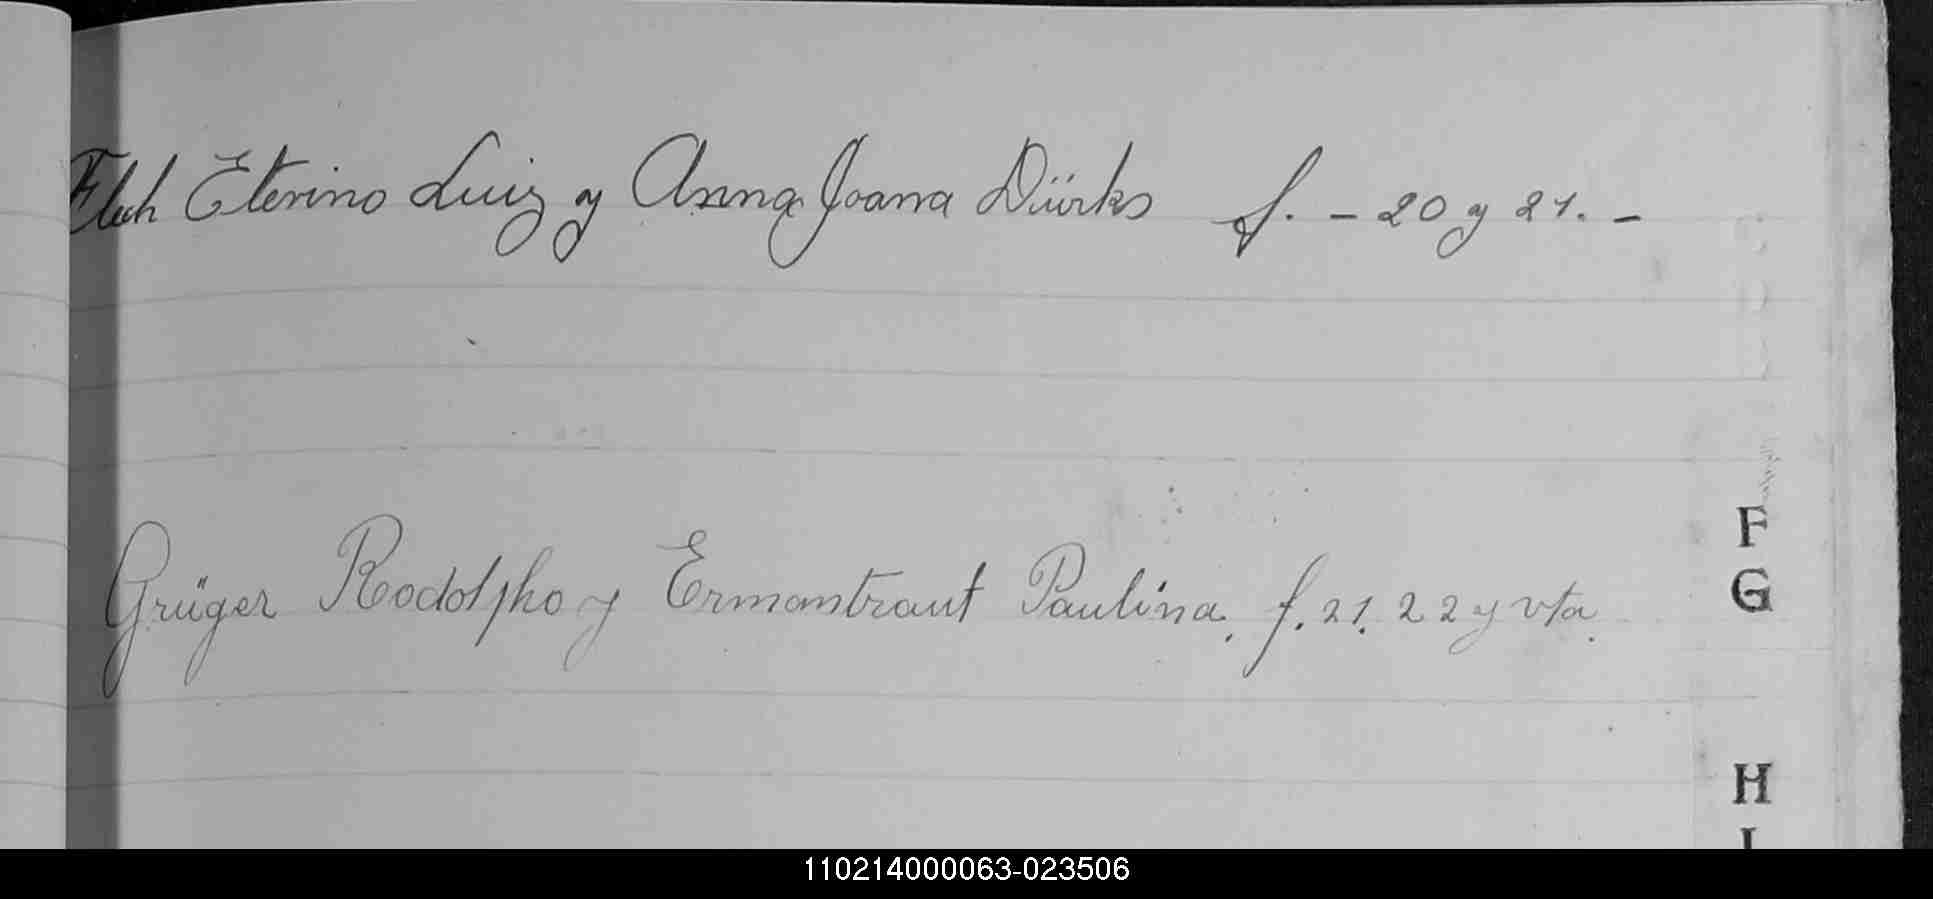 Flech Eterino Luiz y Anna Joana Dürks f. - 20 y 21. -
F
Grüger Rodolpho y Ermantraut Paulina, f. 21. 22 y vta.
G
H
I
110214000063-023506